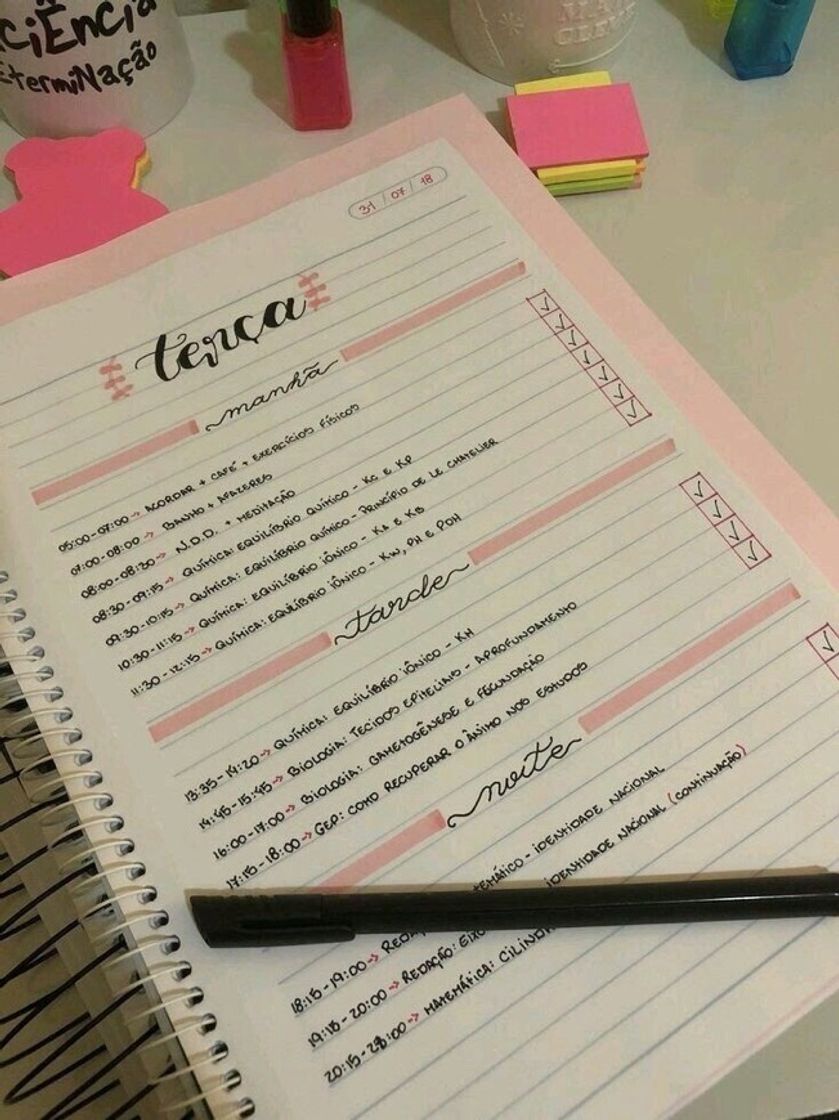 CiÊNCiA
etermiNação
31 / 07 / 18
terça
manhã
05:00-07:00 → ACORDAR + CAFÉ + EXERCÍCIOS FÍSICOS
07:00-08:00 → BANHO + AFAZERES
08:00-08:30 → N.D.D. + MEDITAÇÃO
08:30-09:15 → QUÍMICA: EQUILÍBRIO QUÍMICO - KC E KP
09:30-10:15 → QUÍMICA: EQUILÍBRIO QUÍMICO - PRINCÍPIO DE LE CHATELIER
10:30-11:15 → QUÍMICA: EQUILÍBRIO IÔNICO - KA E KB
11:30-12:15 → QUÍMICA: EQUILÍBRIO IÔNICO - KW, PH E POH
tarde
13:35-14:20 → QUÍMICA: EQUILÍBRIO IÔNICO - KH
14:45-15:45 → BIOLOGIA: TECIDOS EPITELIAIS - APROFUNDAMENTO
16:00-17:00 → BIOLOGIA: GAMETOGÊNESE E FECUNDAÇÃO
17:15-18:00 → GEP: COMO RECUPERAR O ÂNIMO NOS ESTUDOS
noite
18:15-19:00 → REDA TEMÁTICO - IDENTIDADE NACIONAL
19:15-20:00 → REDAÇÃO: EIXO IDENTIDADE NACIONAL (CONTINUAÇÃO)
20:15- → MATEMÁTICA: CILIND